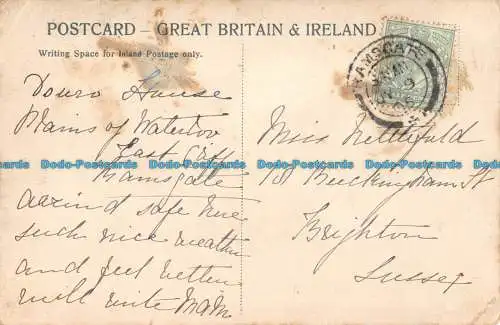 POSTCARD – GREAT BRITAIN & IRELAND
Writing Space for Inland Postage only.
RAMSGATE
Douro House
Plains of Waterloo
East Cliff
Ramsgate
safe
such nice weather
and feel better
will write
Miss Nettlefold
101 Buckingham St
Brighton
Sussex
Dodo-Postcards Dodo-Postcards Dodo-Postcards Dodo-Postcards Dodo-Postcards